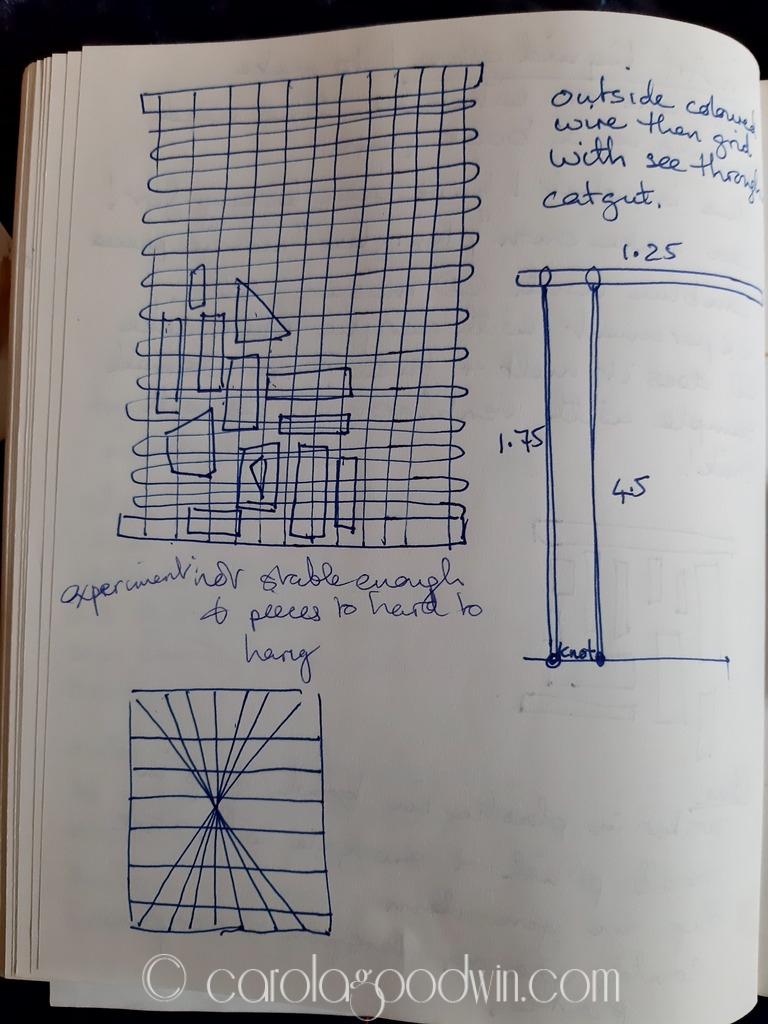 outside coloured
wire then grid.
with see through
catgut.
1.25
1.75
4.5
knot
experiment not stable enough
& pieces to hard to
hang
© carolagoodwin.com